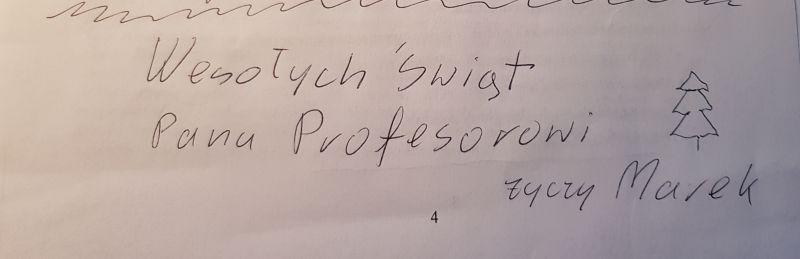 Wesołych Świąt
Panu Profesorowi
życzy Marek
4